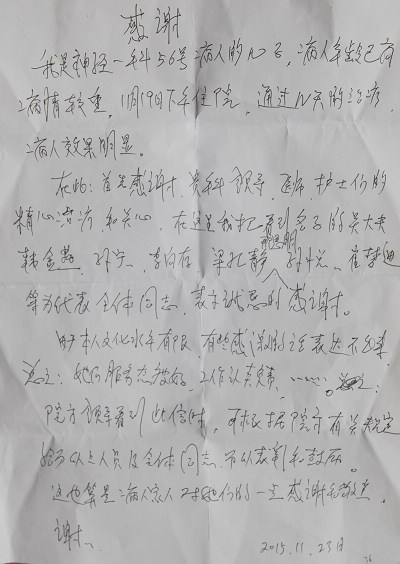 感谢
我是神经一科56号病人的儿子，病人年龄已高
病情较重，11月19日下午住院，通过N天的治疗，
病人效果明显。
在此：首先感谢贵科领导、医师、护士们的
精心治疗和关心，在这里我把看到名子的吴大夫
韩金 孙宁 李向存 梁红静 孙悦、崔梦迪
等为代表全体同志，表示诚恳的感谢。
由于本人文化水平有限，有些感谢的话表达不出来，
总之：她们服务态度好，工作认真负责，……。
院方领导看到此信时，可根据院方有关规定
给予以上人员及全体同志，予以表彰和鼓励。
这也算是病人家人对她们的一点感谢和敬意
谢谢
2015.11.23日